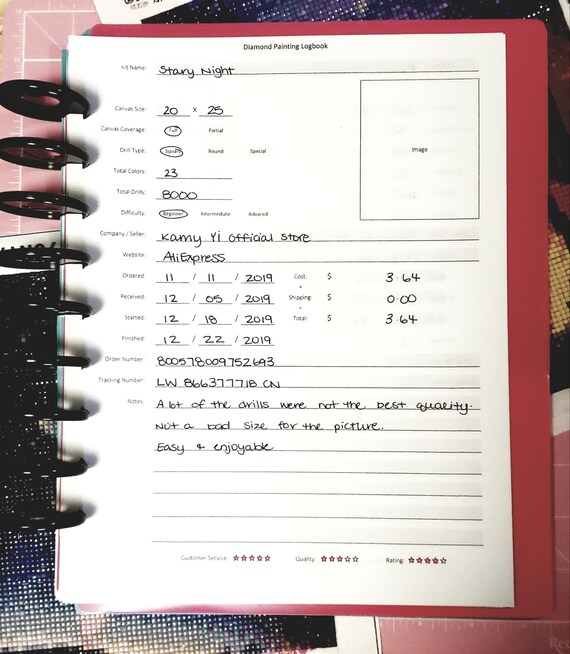 Diamond Painting Logbook
Kit Name: Stary Night
Canvas Size: 20 x 25
Canvas Coverage: Full Partial
Drill Type: Square Round Special
Image
Total Colors: 23
Total Drills: 8000
Difficulty: Beginner Intermediate Advaced
Company / Seller: Kamy Yi Official Store
Website: AliExpress
Ordered: 11 / 11 / 2019 Cost: $ 3.64
+
Received: 12 / 05 / 2019 Shipping: $ 0.00
=
Started: 12 / 18 / 2019 Total: $ 3.64
Finished: 12 / 22 / 2019
Order Number: 800578009752693
Tracking Number: LW 866377718 CN
Notes: A lot of the drills were not the best quality.
Not a bad size for the picture.
Easy & enjoyable
Customer Service: Quality: Rating: